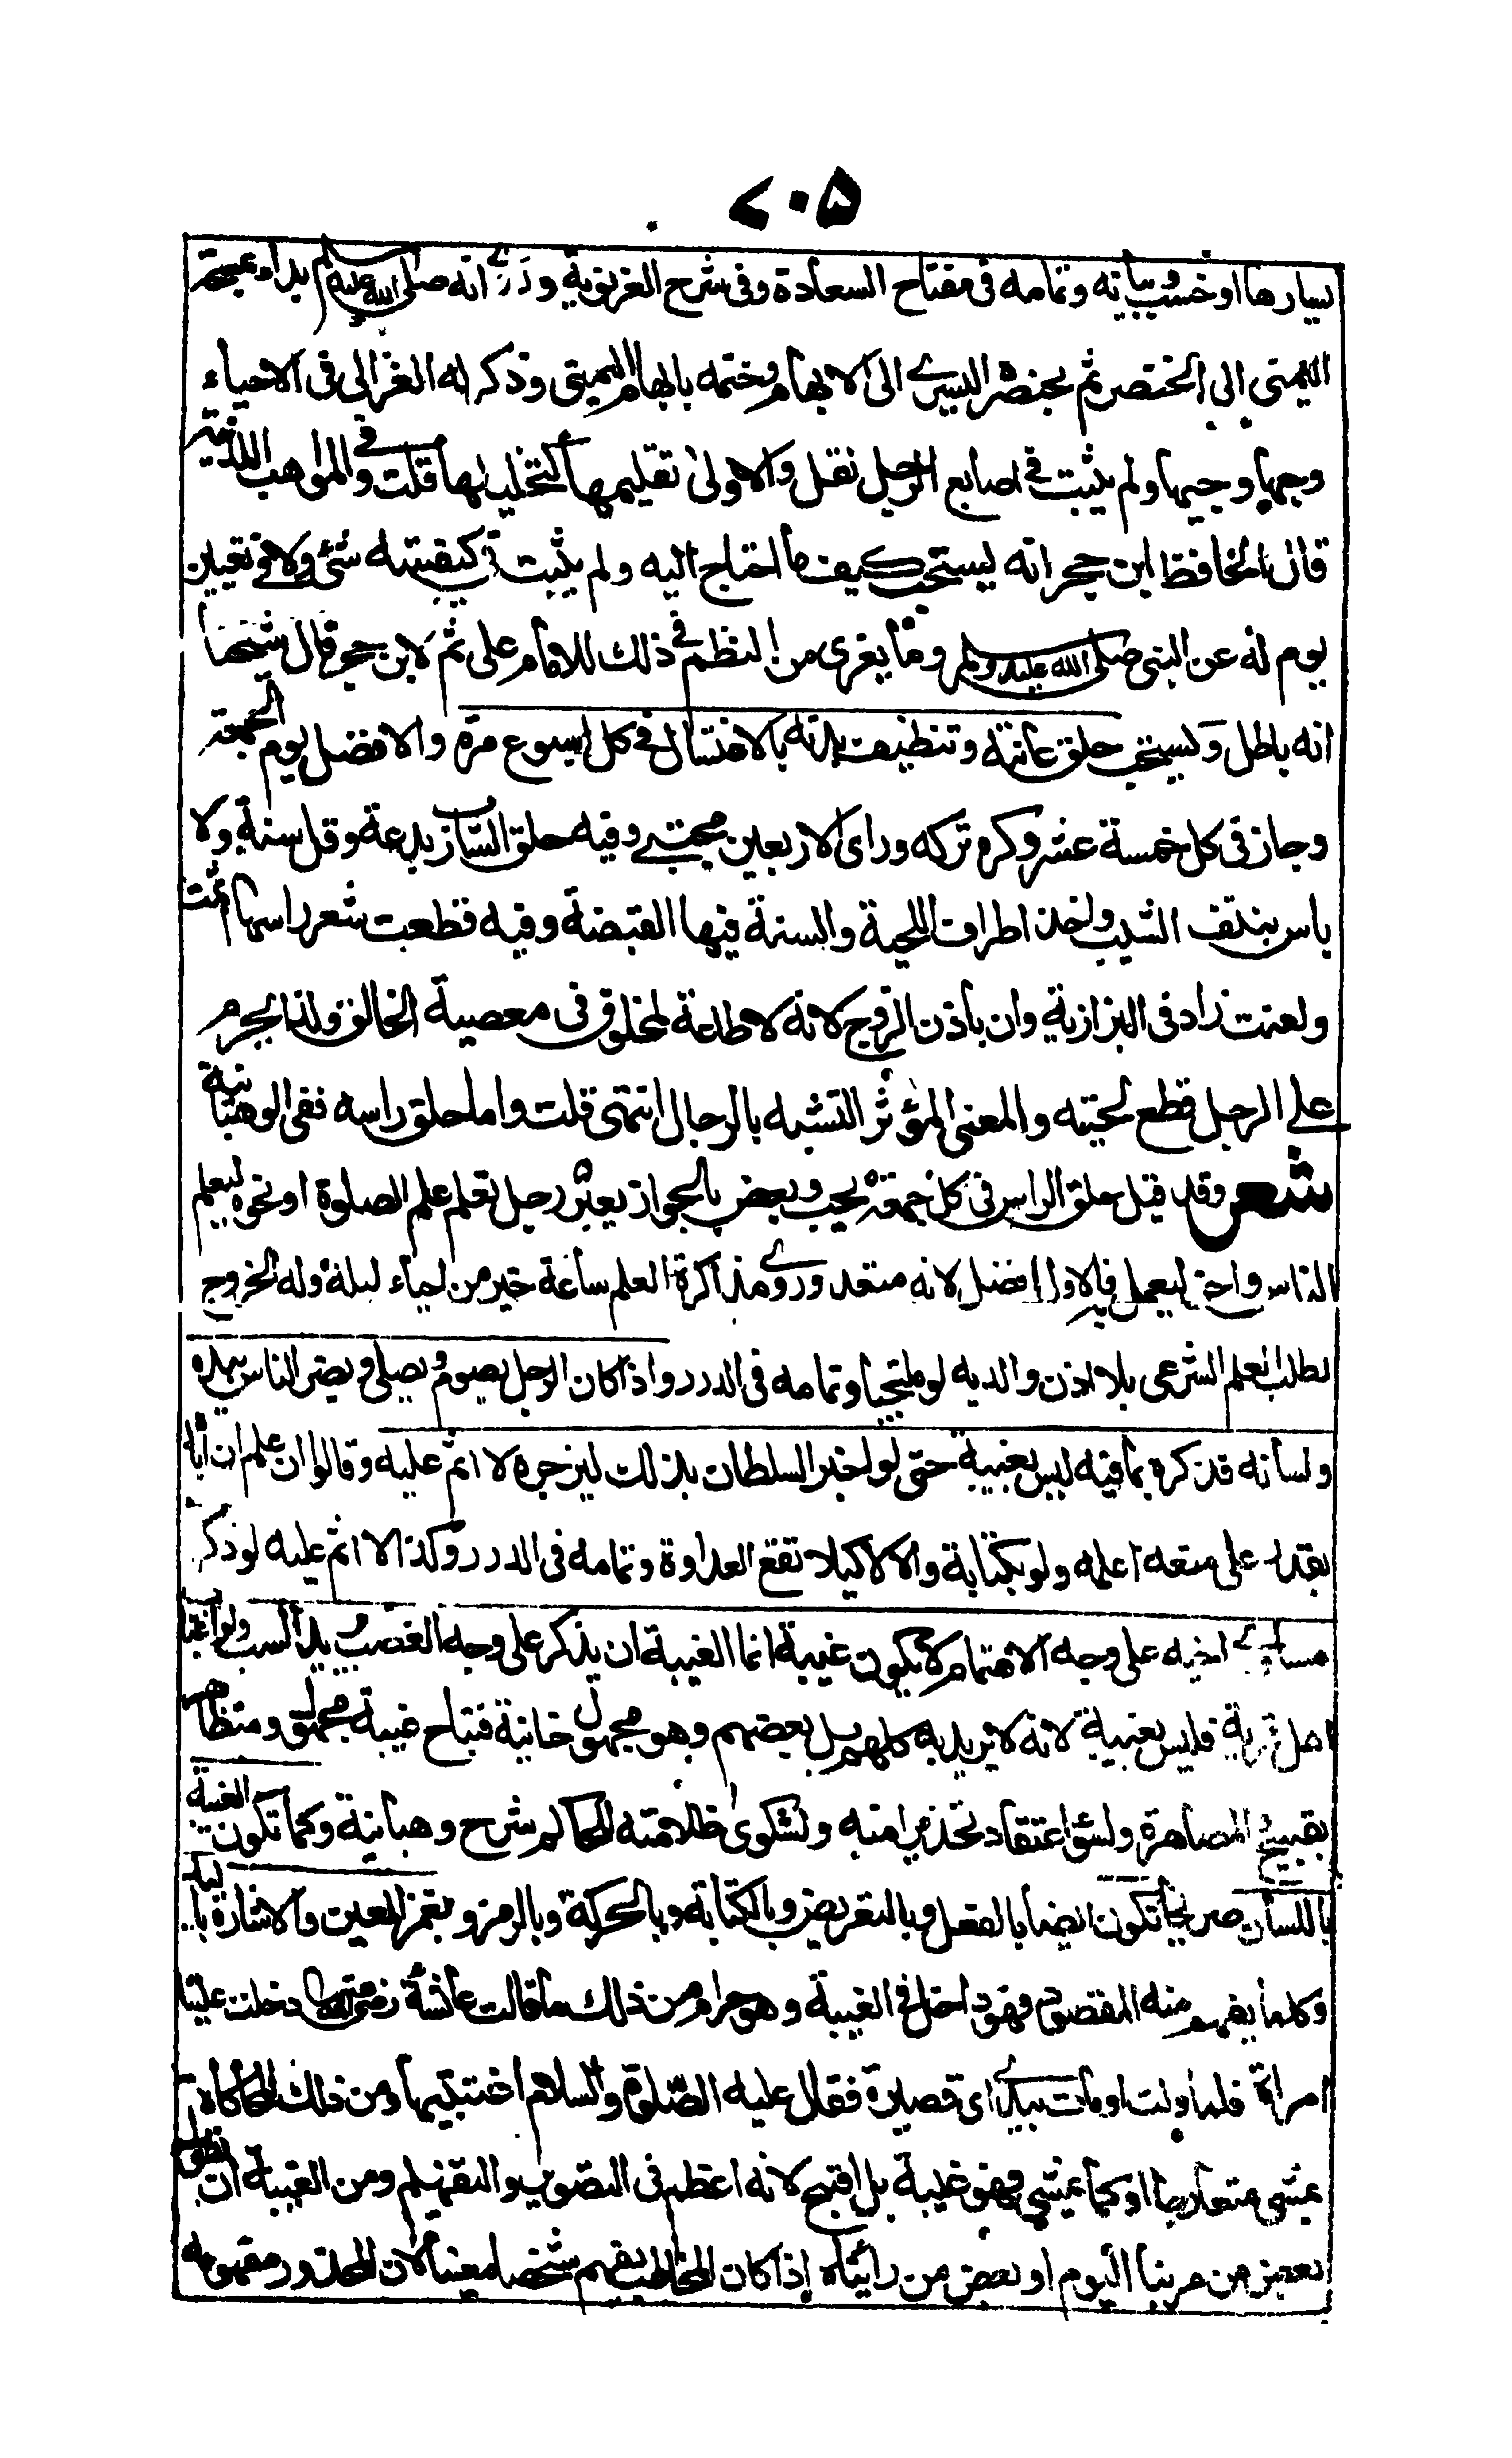 ٧٠٥
يسارها او خسب وبيانه وتمامه في مفتاح السعادة وفي شرح الغزنوية وروى انه صلى الله عليه وسلم بداء بمسبحته
اليمنى الى الخنصر ثم بخنصر اليسرى الى الابهام وختمه بابهام اليمنى وذكر له الغزالى في الاحياء
وجها وجيها ولم يثبت في اصابع الرجل نقل والاولى تقليمها كتخليلها قلت وفي المواهب اللدنية
قال الحافظ ابن حجر انه يستحب كيف ما احتاج اليه ولم يثبت في كيفيته شئ ولا في تعيين
يوم له عن النبى صلى الله عليه وسلم وما يعزى من النظم في ذلك للامام على ثم لابن حجر قال شيخنا
انه باطل ويستحب حلق عانته وتنظيف بدنه بالاغتسال في كل اسبوع مرة والافضل يوم الجمعة
وجاز في كل خمسة عشر وكره تركه وراى الاربعين مجتبى وفيه حلق الشارب بدعة وقيل سنة ولا
باس بنتف الشيب واخذ اطراف اللحية والسنة فيها القبضة وفيه قطعت شعر راسها اثمت
ولعنت زاد في البزازية وان باذن الزوج لانه لا طاعة لمخلوق في معصية الخالق ولذا يحرم
على الرجل قطع لحيته والمعنى المؤثر التشبه بالرجال انتهى قلت واما حلق راسه ففى الوهبانية
شعر وقد قيل حلق الراس في كل جمعة يحب وبعض بالجواز يعبر رجل تعلم علم الصلوة او نحوه ليعلم
الناس واخر ليعمل به فالاول افضل لانه متعد وروى مذاكرة العلم ساعة خير من احياء ليلة وله الخروج
لطلب العلم الشرعى بلا اذن والديه لو ملتحيا وتمامه في الدرر واذا كان الرجل يصوم ويصلى ويضر الناس بيده
ولسانه فذكره بما فيه ليس بغيبة حتى لو اخبر السلطان بذلك ليزجره لا اثم عليه وقالوا ان علم ان اباه
يقدر على منعه اعلمه ولو بكتابة والا لا كيلا تقع العداوة وتمامه في الدرر وكذا لا اثم عليه لو ذكر
مساوى اخيه على وجه الاهتمام لا يكون غيبة انما الغيبة ان يذكر على وجه الغضب يريد السب ولو اغتاب
اهل قرية فليس بغيبة لانه لا يريد به كلهم بل بعضهم وهو مجهول خانية فتباح غيبة مجهول ومتظاهر
بقبيح المصاهرة ولسؤ اعتقاد تحذيرا منه ولشكوى ظلامته للحاكم شرح وهبانية وكما تكون الغيبة
باللسان صريحا تكون ايضا بالفعل وبالتعريض وبالكتابة وبالحركة وبالرمز وبغمز العين والاشارة باليد
وكلما يفهم منه المقصود فهو داخل في الغيبة وهو حرام ومن ذلك ما قالت عائشة رضى الله عنها دخلت علينا
امراة فلما ولت اومات بيدى اى قصيرة فقال عليه الصلوة والسلام اغتبتيها ومن ذلك المحاكاة
يمشى متعارجا او كما يمشى فهو غيبة بل اقبح لانه اعظم في التصوير والتفهيم ومن الغيبة ان تقول
بعض من مر بنا اليوم او بعض من رايناه اذا كان المخاطب يفهم شخصا معينا لان المحذور مفهومه